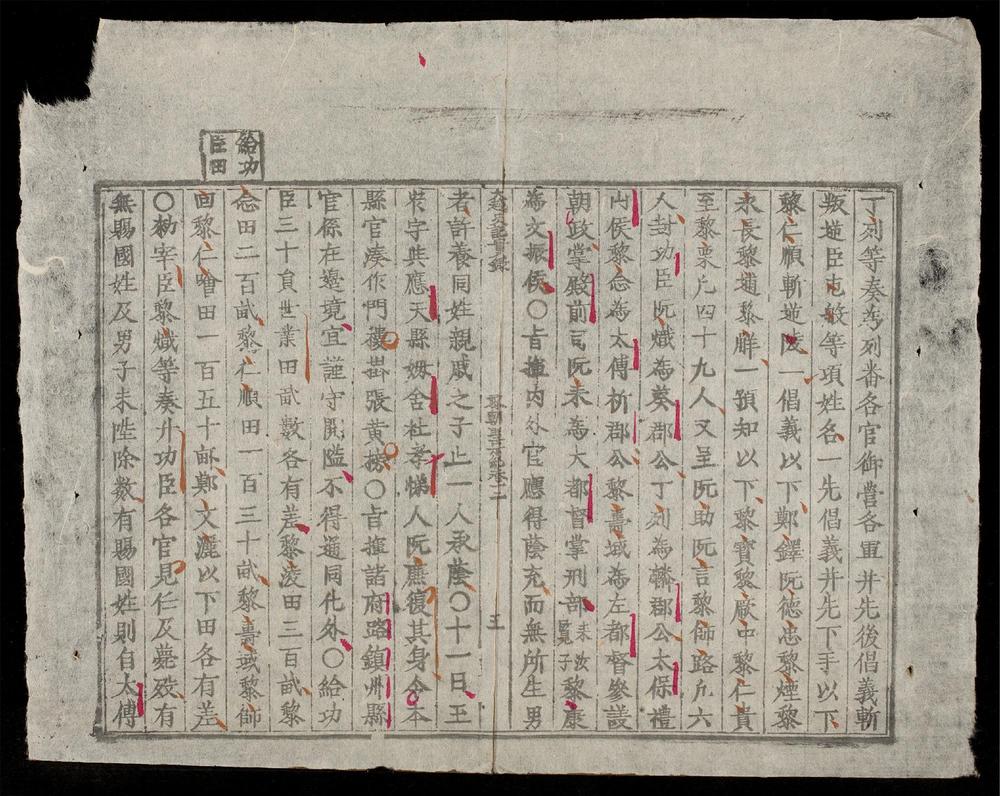 丁列等奏爲列番各官御營各軍并先後倡義斬
叛逆臣屯般等項姓名一先倡義并先下手以下
黎仁順斬逆陵一倡義以下鄭鐸阮德忠黎煙黎
永長黎逋黎觧一預知以下黎寶黎厥中黎仁貴
至黎栗凢四十九人又呈阮助阮言黎師路凢六
人封功臣阮熾爲葵郡公丁列爲轔郡公太保禮
山侯黎念爲太傅析郡公黎壽域爲左都督參議
朝政掌殿前司阮耒爲大都督掌刑部耒汝覧子黎康
爲文振侯〇旨揮内外官應得蔭充而無所生男
大越史記實錄
五
者許養同姓親戚之子止一人承蔭〇十一日王
裝字典應天縣姆舍社孝悌人阮廉復其身令本
縣官湊作門樓掛張黄榜〇旨揮諸府路鎮州縣
官係在邉境宜謹守關隘不得通同化外〇給功
臣三十員世業田畝數各有差黎凌田三百畝黎
念田二百畝黎仁順田一百三十畝黎壽域黎師
回黎仁噲田一百五十畝鄭文灑以下田各有差
〇勑宰臣黎熾等奏升功臣各官見仕及薨殁有
無賜國姓及男子未陞除數有賜國姓則自太傅
給功臣田